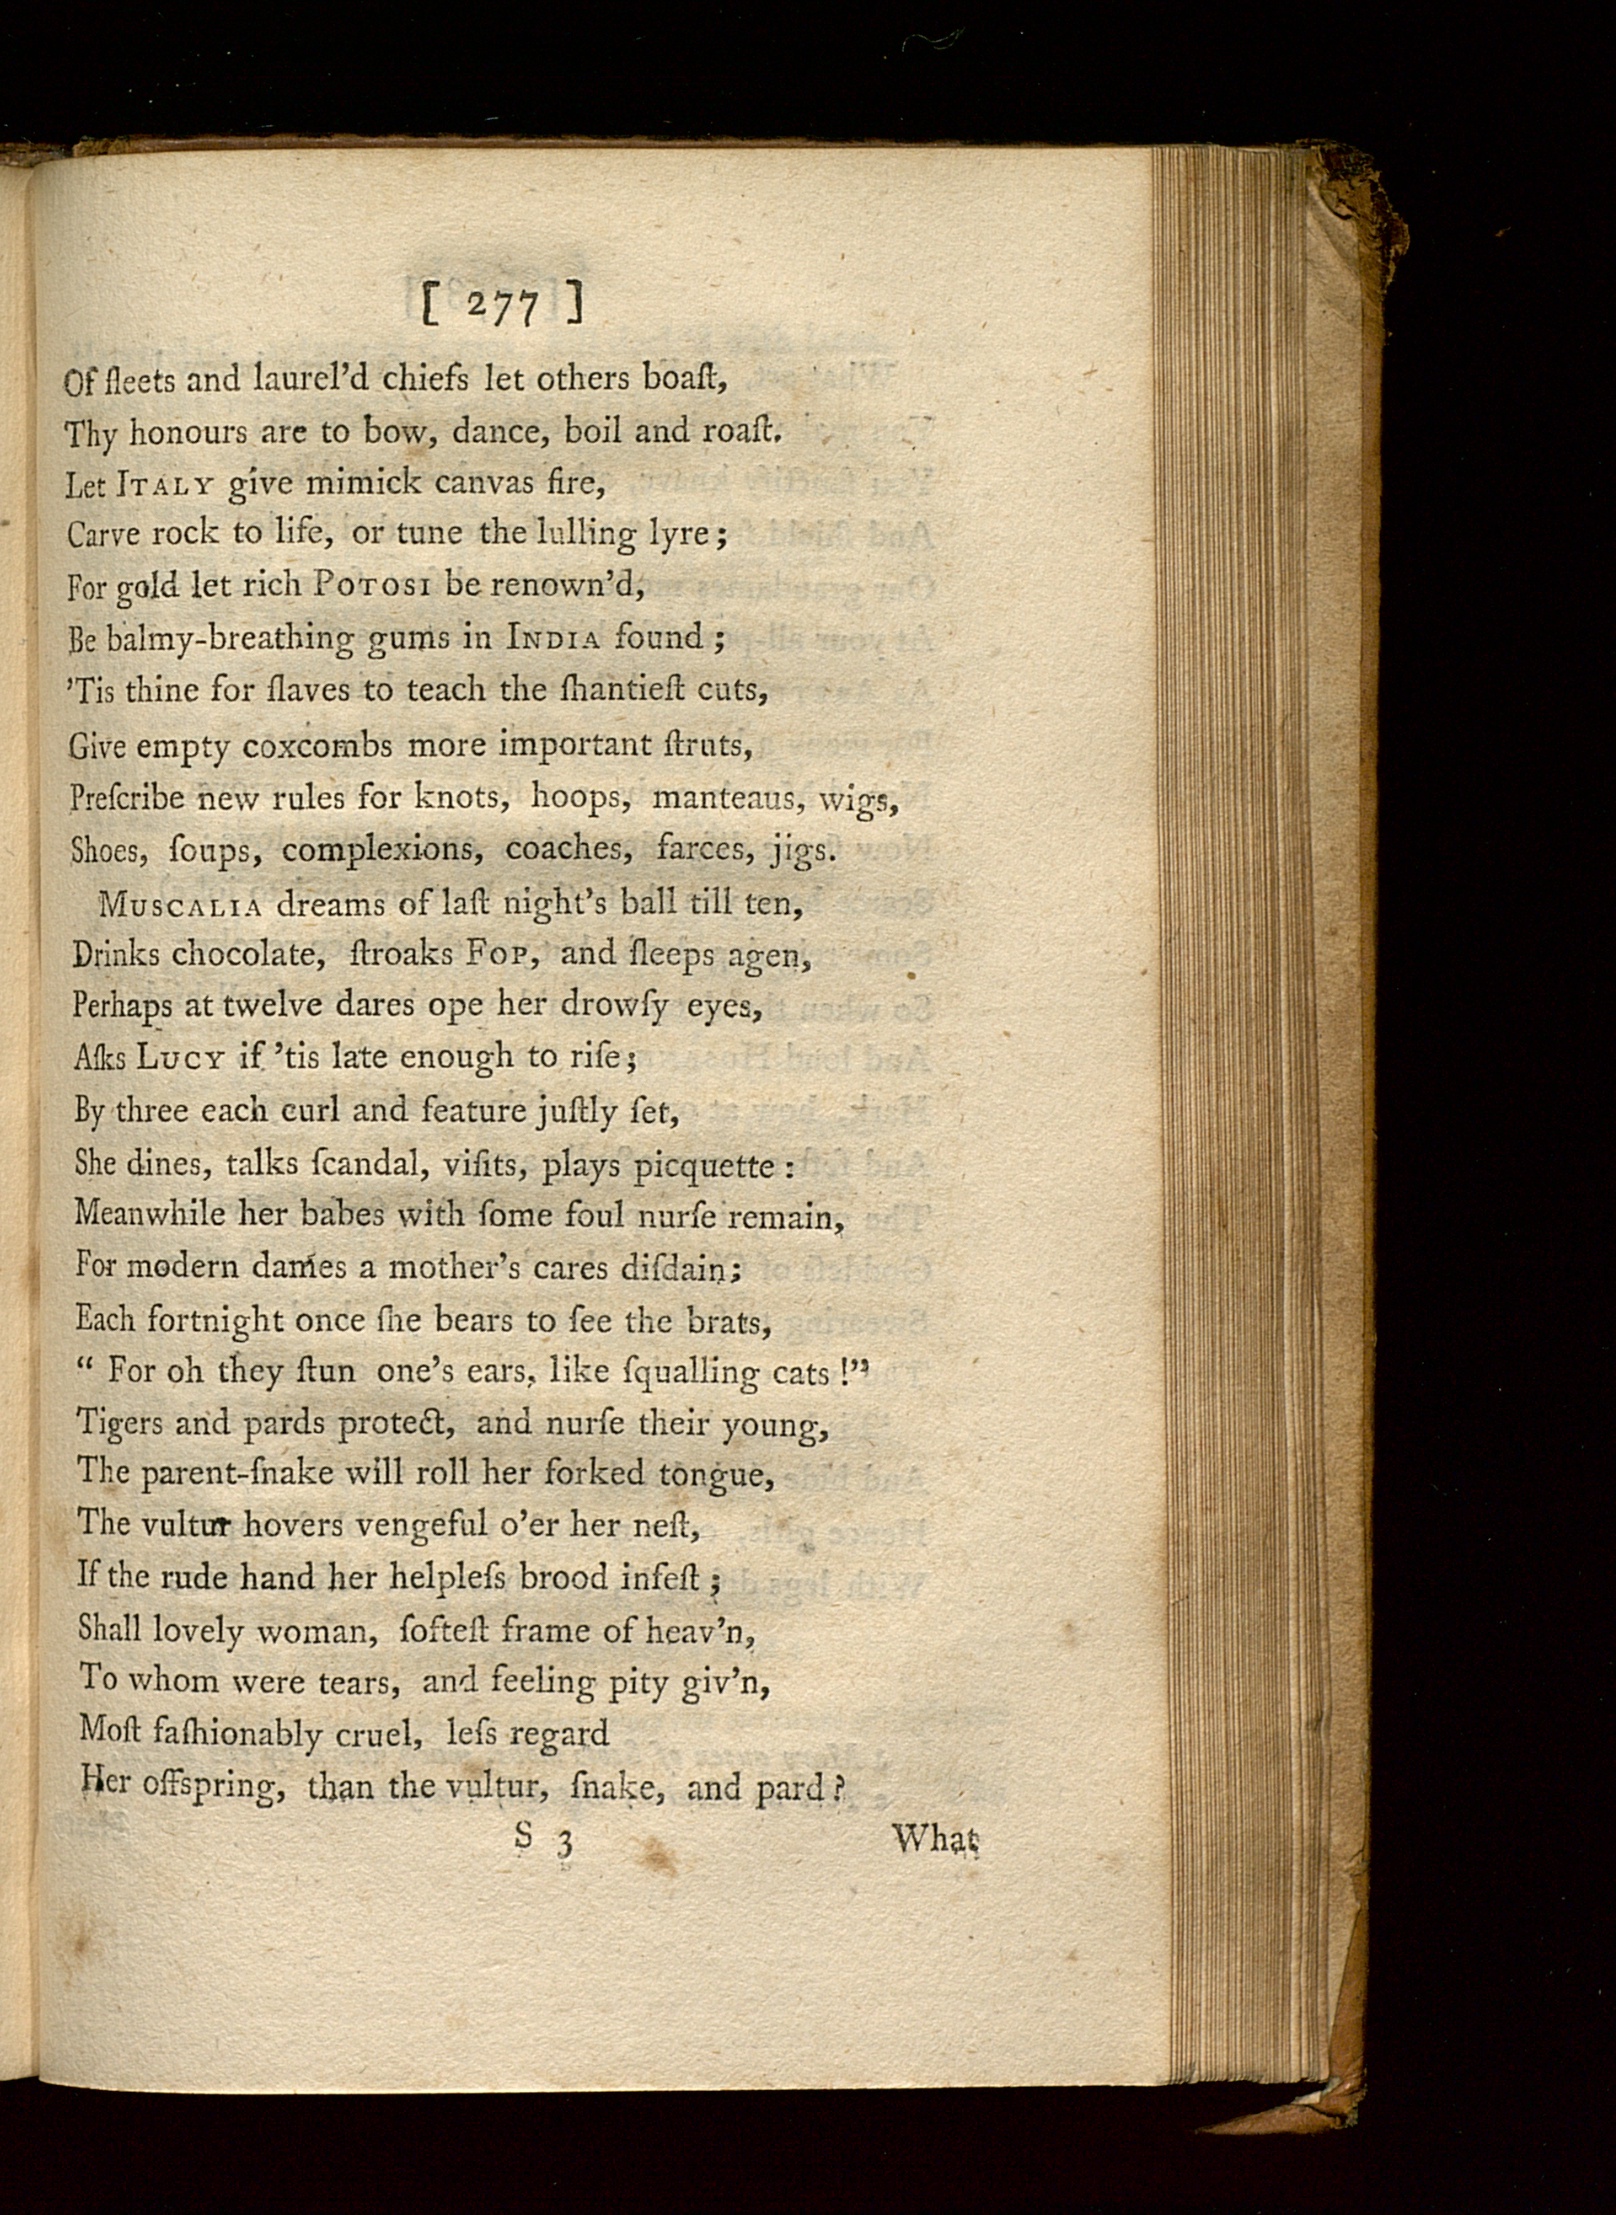 [ 277 ]
Of fleets and laurel’d chiefs let others boaſt,
Thy honours are to bow, dance, boil and roaſt.
Let ITALY give mimick canvas fire,
Carve rock to life, or tune the lulling lyre;
For gold let rich POTOSI be renown’d,
Be balmy-breathing gums in INDIA found;
’Tis thine for ſlaves to teach the ſhantieſt cuts,
Give empty coxcombs more important ſtruts,
Preſcribe new rules for knots, hoops, manteaus, wigs,
Shoes, ſoups, complexions, coaches, farces, jigs.
MUSCALIA dreams of laſt night’s ball till ten,
Drinks chocolate, ſtroaks FOP, and ſleeps agen,
Perhaps at twelve dares ope her drowſy eyes,
Aſks LUCY if ’tis late enough to riſe;
By three each curl and feature juſtly ſet,
She dines, talks ſcandal, viſits, plays picquette:
Meanwhile her babes with ſome foul nurſe remain,
For modern dames a mother’s cares diſdain;
Each fortnight once ſhe bears to ſee the brats,
“ For oh they ſtun one’s ears, like ſqualling cats!”
Tigers and pards protect, and nurſe their young,
The parent-ſnake will roll her forked tongue,
The vultur hovers vengeful o’er her neſt,
If the rude hand her helpleſs brood infeſt;
Shall lovely woman, ſofteſt frame of heav’n,
To whom were tears, and feeling pity giv’n,
Moſt faſhionably cruel, leſs regard
Her offspring, than the vultur, ſnake, and pard?
S 3 What